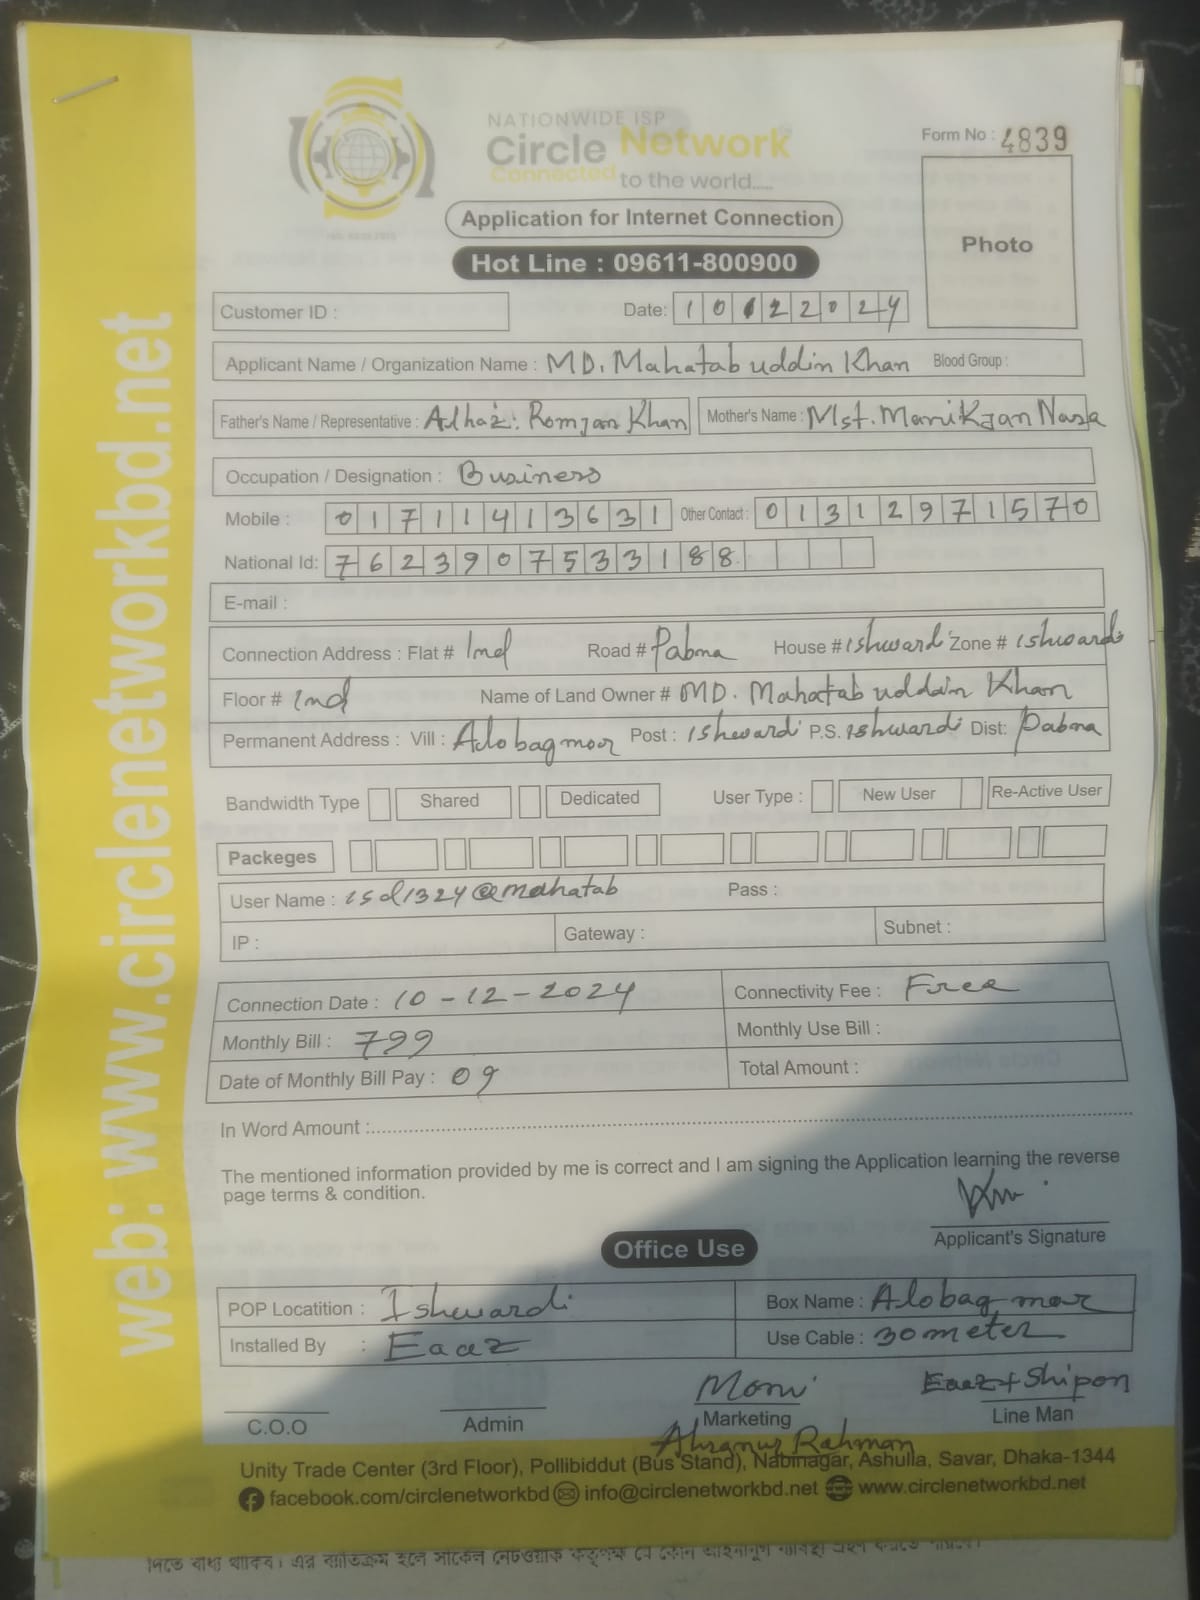 NATIONWIDE ISP
Circle Network
Connected to the world.....
Form No : 4839
Application for Internet Connection
Photo
Hot Line : 09611-800900
Customer ID :
Date: 10122024
Applicant Name / Organization Name : MD. Mahatab uddin Khan Blood Group :
Father's Name / Representative : Romjan Khan Mother's Name : Mst. Manikjan Nasa
Occupation / Designation : Business
Mobile : 01711413631 Other Contact : 01312971570
National Id: 7623907533188
E-mail :
Connection Address : Flat # 1nd Road # Pabna House # ishward Zone # ishwardi
Floor # 1nd Name of Land Owner # MD. Mahatab uddain Khan
Permanent Address : Vill : Alobagmoor Post : ishwardi P.S. ishwardi Dist: Pabna
Bandwidth Type Shared Dedicated User Type : New User Re-Active User
Packeges
User Name : isd1324@mahatab Pass :
IP : Gateway : Subnet :
Connection Date : 10-12-2024 Connectivity Fee : Free
Monthly Bill : 799 Monthly Use Bill :
Date of Monthly Bill Pay : 09 Total Amount :
In Word Amount :
The mentioned information provided by me is correct and I am signing the Application learning the reverse
page terms & condition.
Applicant's Signature
Office Use
POP Locatition : Ishwardi Box Name : Alobag mor
Installed By : Eaaz Use Cable : 30 meter
Moni Eaaz + Shipon
C.O.O Admin Marketing Line Man
Rahman
Unity Trade Center (3rd Floor), Pollibiddut (Bus Stand), Nabinagar, Ashulla, Savar, Dhaka-1344
facebook.com/circlenetworkbd info@circlenetworkbd.net www.circlenetworkbd.net
web: www.circlenetworkbd.net